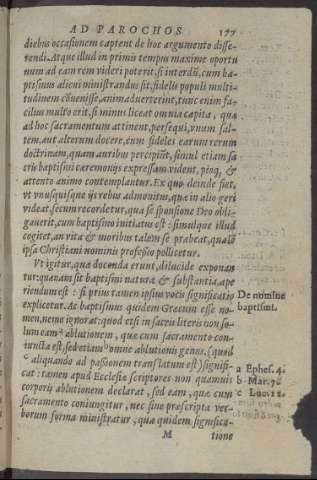 AD PAROCHOS 177
diebus occasionem captent de hoc argumento disse-
rendi. Atque illud in primis tempus maxime oportu
num ad eam rem videri poterit. si interdiu, cum ba-
ptismus alicui ministrandus sit, fidelis populi multi-
tudinem cõuenisse, animaduerterint, tunc enim fa-
cilius multo erit, si minus liceat omnia capita, quæ
ad hoc sacramentum attinent, persequi, vnum sal-
tem, aut alterum docere, cum fideles earum rerum
doctrinam, quam auribus percipiũt, simul etiam sa
cris baptismi cæremonijs expressam vident, pioq; &
attento animo contemplantur. Ex quo deinde fiet,
vt vnusquisque ijs rebus admonitus, quæ in alio geri
videat, secum recordetur, qua se sponsione Deo obli-
gauerit, cum baptismo initiatus est: simulque illud
cogitet, an vita & moribus talem se præbeat, qualẽ
ipsa Christiani nominis professio pollicetur.
Vt igitur, quæ docenda erunt, dilucide exponan
tur: quænam sit baptismi natura & substantia, ape
riendum est: si prius tamen ipsius vocis significatio
explicetur. Ac baptismus quidem Græcum esse no-
men, nemo ignorat: quod etsi in sacris literis non so-
lum eam a ablutionem, quæ cum sacramento con-
iuncta est, sed etiam b omne ablutionis genus. (quod
c aliquando ad passionem translatum est) signifi-
cat: tamen apud Ecclesiæ scriptores non quamuis
corporis ablutionem declarat, sed eam, quæ cum
sacramento coniungitur, nec sine præscripta ver-
borum forma ministratur, qua quidem significa-
M tione
De nomine
baptismi.
a Ephes. 4.
b Mar. 7.
c Luc. 12.